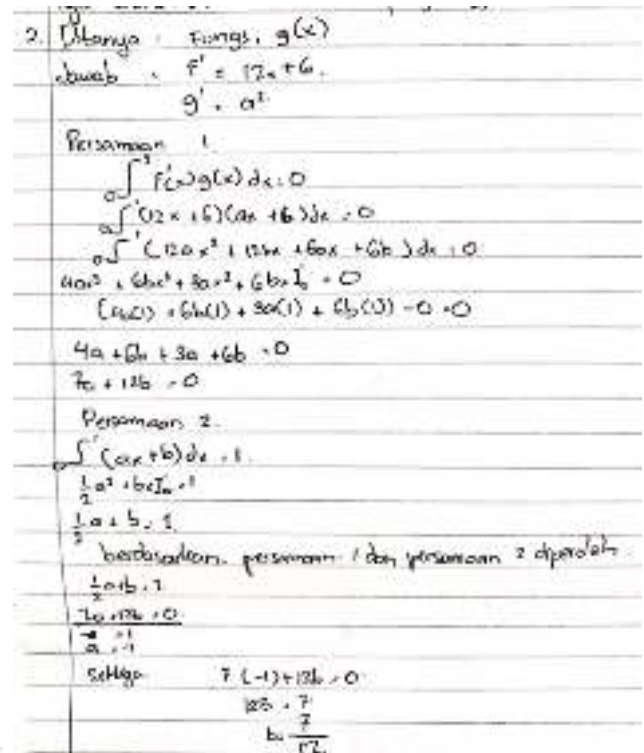 2. Ditanya : Fungsi g(x)
Jawab : f' = 12x + 6.
g' = a².
Persamaan 1
₀∫¹ f(x)g(x) dx = 0
₀∫¹ (12x + 6)(ax + b) dx = 0
₀∫¹ (12ax² + 12bx + 6ax + 6b) dx = 0
4ax³ + 6bx² + 3ax² + 6bx]₀ = 0
(4a(1) + 6b(1) + 3a(1) + 6b(1)) - 0 = 0
4a + 6b + 3a + 6b = 0
7a + 12b = 0
Persamaan 2.
₀∫¹ (ax + b) dx = 1.
½a² + bx]₀ = 1
½a + b = 1
berdasarkan persamaan 1 dan persamaan 2 diperoleh
½a + b = 1
7a + 12b = 0
a = -1
Sehingga 7(-1) + 12b = 0
12b = 7
b = 7/12